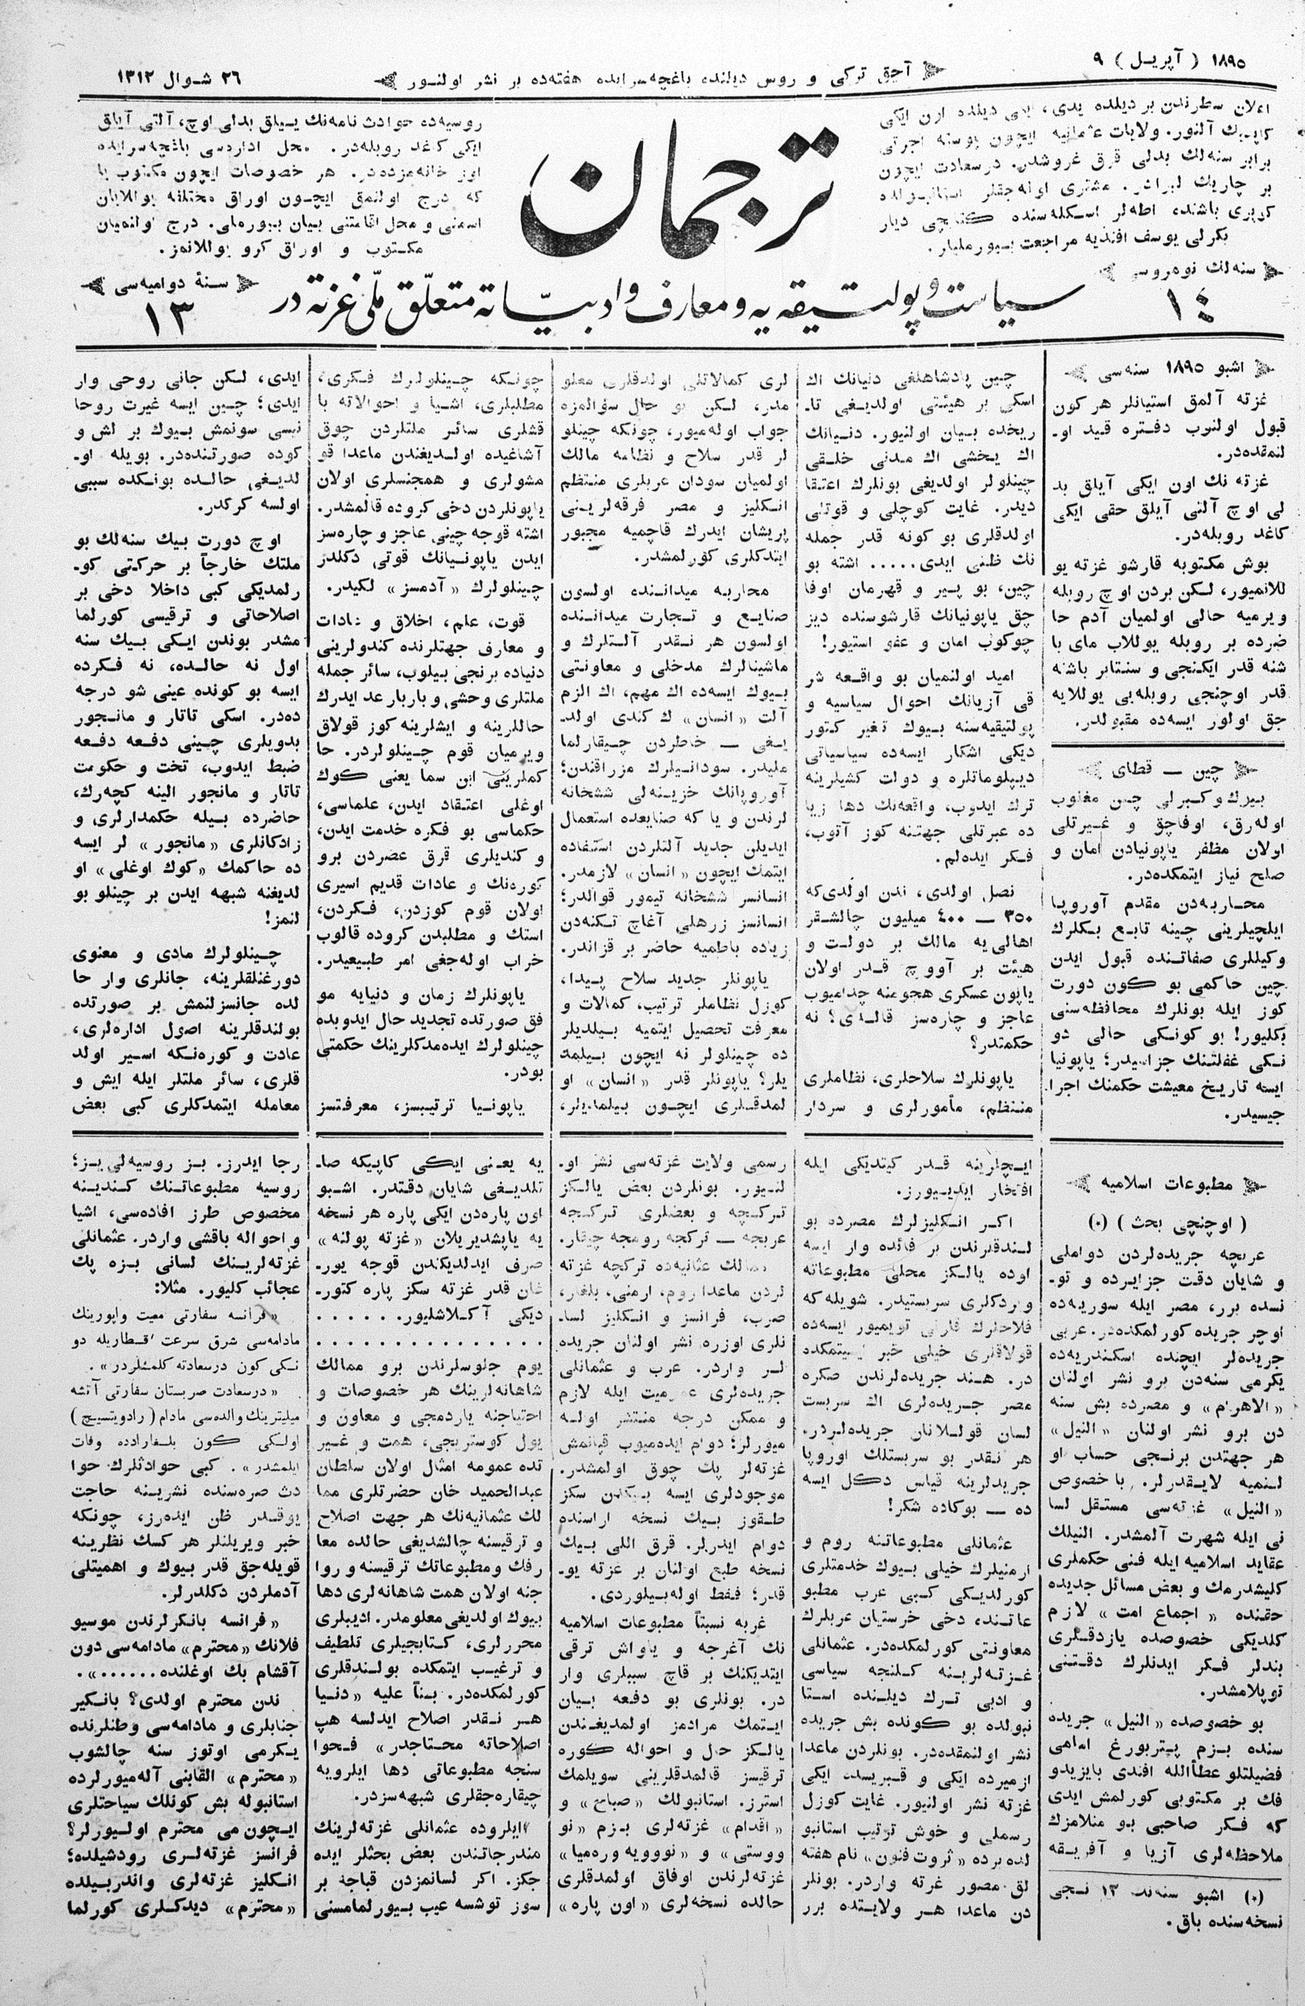 ١٨٩٥ ( آپریل ) ٩
آچق ترکی و روس دیلنده باغچه‌سرایده هفته‌ده بر نشر اولنور
٢٦ شوال ١٣١٢
اعلان سطرندن بر دیلده یدی، ایکی دیلده اون ایکی
کاپیك آلنور. ولایات عثمانیه ایچون پوسته اجرتی
برابر سنه‌لك بدلی قرق غروشدر. درسعادت ایچون
بر چاریك لیرادر. مشتری اوله‌جقلر استانبولده
کوپری باشند، اطه‌لر اسکله‌سنده کتابچی دیار
بکرلی یوسف افندیه مراجعت بیورملیلر.
ترجمان
روسیه‌ده حوادث نامه‌نك ییللق بدلی اوچ، آلتی آیلق
ایکی کاغد روبله‌در. محل اداره‌سی باغچه‌سرایده
اوز خانه‌مزده‌در. هر خصوصات ایچون مکتوب یا
که درج اولنمق ایچون اوراق مختلفه یوللایان
اسمنی و محل اقامتنی بیان بیورملی. درج اولنمیان
مکتوب و اوراق کرو یوللانمز.
سنه‌لك نومروسی
١٤
سیاست و پولتیقه‌یه و معارف و ادبیاته متعلّق ملّی غزته‌در
سنهٔ دوامیه‌سی
١٣
اشبو ١٨٩٥ سنه‌سی
غزته آلمق استیانلر هر کون
قبول اولنوب دفتره قید او-
لنمقده‌در.
غزته نك اون ایکی آیلق بد
لی اوچ آلتی آیلق حقی ایکی
کاغد روبله‌در.
بوش مکتوبه قارشو غزته یو
للانمیور، لکن بردن اوچ روبله
ویرمیه حالی اولمیان آدم حا
ضرده بر روبله یوللاب مای با
شنه قدر ایکنجی و سنتابر باشنه
قدر اوچنجی روبله‌یی یوللایه
جق اولور ایسه‌ده مقبولدر.
چین — قطای
بیوك و کبرلی چین مغلوب
اوله‌رق، اوفاچق و غیرتلی
اولان مظفر یاپونیادن امان و
صلح نیاز ایتمکده‌در.
محاربه‌دن مقدم آوروپا
ایلچیلرینی چینه تابع بکلرك
وکیللری صفاتنده قبول ایدن
چین حاکمی بو کون دورت
کوز ایله بونلرك محافظه‌سنی
بکلیور! بو کونکی حالی دو
نکی غفلتنك جزاسیدر؛ یاپونیا
ایسه تاریخ معیشت حکمنك اجرا
جیسیدر.
چین پادشاهلغی دنیانك اك
اسکی بر هیئتی اولدیغی تا-
ریخده بیان اولنیور. دنیانك
اك یخشی اك مدنی خلقی
چینلولر اولدیغی بونلرك اعتقا
دیدر. غایت کوچلی و قوتلی
اولدقلری بو کونه قدر جمله
نك ظنی ایدی..... اشته بو
چین، بو پیر و قهرمان اوفا
چق یاپونیانك قارشوسنده دیز
چوکوب امان و عفو استیور!
امید اولنمیان بو واقعه شر
قی آزیانك احوال سیاسیه و
پولتیقه‌سنه بیوك تغیر کتور
دیکی آشکار ایسه‌ده سیاسیاتی
دیپلوماتلره و دولت کشیلرینه
ترك ایدوب، واقعه‌نك دها زیا
ده عبرتلی جهتنه کوز آتوب،
فکر ایده‌لم.
نصل اولدی، ندن اولدی‌که
٣٥٠ — ٤٠٠ میلیون چالشقر
اهالی‌یه مالك بر دولت و
هیئت بر آووچ قدر اولان
یاپون عسکری هجومنه چدامیوب
عاجز و چاره‌سز قالدی؟ نه
حکمتدر؟
یاپونلرك سلاحلری، نظاملری
منتظم، مأمورلری و سردار
لری کمالاتلی اولدقلری معلو
مدر، لکن بو حال سؤالمزه
جواب اوله‌میور، چونکه چینلو
لر قدر سلاح و نظامه مالك
اولمیان سودان عربلری منتظم
انکلیز و مصر فرقه‌لرینی
پریشان ایدرك قاچمیه مجبور
ایتدکلری کورلمشدر.
محاربه میداننده اولسون
صنایع و تجارت میداننده
اولسون هر نقدر آلتلرك و
ماشینالرك مدخلی و معاونتی
بیوك ایسه‌ده اك مهم، اك الزم
آلت «انسان» ك کندی اولد-
یغی — خاطردن چیقارلما
ملیدر. سودانیلرك مزراقندن؛
آوروپانك خزینه‌لی ششخانه
لرندن و یا که صنایعده استعمال
ایدیلن جدید آلتلردن استفاده
ایتمك ایچون «انسان» لازمدر.
انسانسز ششخانه تیمور قوالدر؛
انسانسز زرهلی آغاچ تکنه‌دن
زیاده باطمیه حاضر بر قزاندر.
یاپونلر جدید سلاح پیدا،
کوزل نظاملر ترتیب، کمالات و
معرفت تحصیل ایتمیه بیلدیلر
ده چینلولر نه ایچون بیلمه
یلر؟ یاپونلر قدر «انسان» او
لمدقلری ایچون بیلمدیلر،
چونکه چینلولرك فکری،
مطلبلری، اشیا و احوالاته با
قشلری سائر ملتلردن چوق
آشاغیده اولدیغندن ماعدا قو
مشولری و همجنسلری اولان
یاپونلردن دخی کروده قالمشدر.
اشته قوجه چینی عاجز و چاره‌سز
ایدن یاپونیانك قوتی دکلدر
چینلولرك «آدمسز» لکیدر.
قوت، علم، اخلاق و عادات
و معارف جهتلرنده کندولرینی
دنیاده برنجی بیلوب، سائر جمله
ملتلری وحشی و باربار عد ایدرك
حاللرینه و ایشلرینه کوز قولاق
ویرمیان قوم چینلولردر. حا
کملرینی ابن سما یعنی کوك
اوغلی اعتقاد ایدن، علماسی،
حکماسی بو فکره خدمت ایدن،
و کندیلری قرق عصردن برو
کوره‌نك و عادات قدیم اسیری
اولان قوم کوزدن، فکردن،
استك و مطلبدن کروده قالوب
خراب اوله‌جغی امر طبیعیدر.
یاپونلرك زمان و دنیایه مو
فق صورتده تجدید حال ایدوبده
چینلولرك ایده‌مدکلرینك حکمتی
بودر.
یاپونیا ترتیبسز، معرفتسز
ایدی، لکن جانی روحی وار
ایدی؛ چین ایسه غیرت روحا
نیسی سونمش بیوك بر لش و
کوده صورتنده‌در. بویله او-
لدیغی حالده بونکده سببی
اولسه کرکدر.
اوچ دورت بیك سنه‌لك بو
ملتك خارجاً بر حرکتی کو-
رلمدیکی کبی داخلا دخی بر
اصلاحاتی و ترقیسی کورلما
مشدر بوندن ایکی بیك سنه
اول نه حالده، نه فکرده
ایسه بو کونده عینی شو درجه
ده‌در. اسکی تاتار و مانجور
بدویلری چینی دفعه دفعه
ضبط ایدوب، تخت و حکومت
تاتار و مانجور الینه کچه‌رك،
حاضرده بیله حکمدارلری و
زادکانلری «مانجور» لر ایسه
ده حاکمك «کوك اوغلی» او
لدیغنه شبهه ایدن بر چینلو بو
لنمز!
چینلولرك مادی و معنوی
دورغنلقلرینه، جانلری وار حا
لده جانسزلنمش بر صورتده
بولندقلرینه اصول اداره‌لری،
عادت و کوره‌نکه اسیر اولد
قلری، سائر ملتلر ایله ایش و
معامله ایتمدکلری کبی بعض
مطبوعات اسلامیه
( اوچنچی بحث ) (٠)
عربچه جریده‌لردن دواملی
و شایان دقت جزایرده و تو-
نسده برر، مصر ایله سوریه‌ده
اوچر جریده کورلمکده‌در. عربی
جریده‌لر ایچنده اسکندریه‌ده
یکرمی سنه‌دن برو نشر اولنان
«الاهرام» و مصرده بش سنه
دن برو نشر اولنان «النیل»
هر جهتدن برنجی حساب او
لنمیه لایقدرلر. با خصوص
«النیل» غزته‌سی مستقل لسا
نی ایله شهرت آلمشدر. النیلك
عقاید اسلامیه ایله فنی حکملری
کلیشدرمك و بعض مسائل جدیده
حقنده «اجماع امت» لازم
کلدیکی خصوصده یازدقلری
بندلر فکر ایدنلرك دقتنی
توپلامشدر.
بو خصوصده «النیل» جریده
سنده بزم پیتربورغ امامی
فضیلتلو عطاالله افندی بایزیدو
فك بر مکتوبی کورلمش ایدی
که فکر صاحبی بو منلامزك
ملاحظه‌لری آزیا و آفریقه
(٠) اشبو سنه‌نك ١٣ نجی
نسخه‌سنده باق.
ایچلرینه قدر کیتدیکی ایله
افتخار ایدییورز.
اکر انکلیزلرك مصرده بو
لندقلرندن بر فائده وار ایسه
اوده یالکز محلی مطبوعاته
ویردکلری سربستیدر. شویله‌که
فلاحلرك قارنی تویمیور ایسه‌ده
قولاقلری خیلی خبر ایشتمکده
در. هند جریده‌لرندن صکره
مصر جریده‌لری اك سربست
لسان قوللانان جریده‌لردر.
هر نقدر بو سربستلك اوروپا
جریدلرینه قیاس دکل ایسه
ده — بوکاده شکر!
عثمانلی مطبوعاتنه روم و
ارمنیلرك خیلی بیوك خدمتلری
کورلدیکی کبی عرب مطبو
عاتند، دخی خرستیان عربلرك
معاونتی کورلمکده‌در. عثمانلی
غزته‌لرینه کلنجه سیاسی
و ادبی ترك دیلنده استا
نبولده بو کونده بش جریده
نشر اولنمقده‌در. بونلردن ماعدا
ازمیرده ایکی و قبریسده ایکی
غزته نشر اولنیور. غایت کوزل
رسملی و خوش ترتیب استانبو
لده برده «ثروت فنون» نام هفته
لق مصور غزته واردر. بونلر
دن ماعدا هر ولایتده برر
رسمی ولایت غزته‌سی نشر او-
لنیور. بونلردن بعض یالکز
ترکچه و بعضلری ترکچه
عربچه — ترکجه رومجه چیقار.
ممالك عثمانیه‌ده ترکچه غزته
لردن ماعدا روم، ارمنی، بلغار،
صرب، فرانسز و انکلیز لسا-
نلری اوزره نشر اولنان جریده
لر واردر. عرب و عثمانلی
جریده‌لری عمومیت ایله لازم
و ممکن درجه منتشر اوله
میورلر؛ دوام ایده‌میوب قپانمش
غزته‌لر پك چوق اولمشدر.
موجودلری ایسه بیکدن سکز
طقوز بیك نسخه اراسنده
دوام ایدرلر. قرق اللی بیك
نسخه طبع اولنان بر غزته یو-
قدر؛ فقط اوله‌بیلوردی.
غربه نسبتاً مطبوعات اسلامیه
نك آغرجه و یاواش ترقی
ایتدیکنك بر قاچ سببلری وار
در. بونلری بو دفعه بیان
ایتمك مرادمز اولمدیغندن
یالکز حال و احواله کوره
ترقیسز قالمدقلرینی سویلمك
استرز. استانبولك «صباح» و
«اقدام» غزته‌لری بزم «نو
ووستی» و «نوویه وره‌میا»
غزته‌لرندن اوفاق اولمدقلری
حالده نسخه‌لری «اون پاره»
یه یعنی ایکی کاپیکه صا-
تلدیغی شایان دقتدر. اشبو
اون پاره‌دن ایکی پاره هر نسخه
یه یاپشدیریلان «غزته پولنه»
صرف ایدلدیکندن قوجه یور-
غان قدر غزته سکز پاره کتور-
دیکی آکلاشلیور. . . . . . .
. . . . . . . . . . . . . . .
یوم جلوسلرندن برو ممالك
شاهانه‌لرینك هر خصوصات و
احتیاجنه یاردمجی و معاون و
یول کوستریجی، همت و غیر
تده عمومه امثال اولان سلطان
عبدالحمید خان حضرتلری مما
لك عثمانیه‌نك هر جهت اصلاح
و ترقیسنه چالشدیغی حالده معا
رفك و مطبوعاتك ترقیسنه و روا
جنه اولان همت شاهانه‌لری دها
بیوك اولدیغی معلومدر. ادیبلری
محررلری، کتابجیلری تلطیف
و ترغیب ایتمکده بولندقلری
کورلمکده‌در. بناً علیه «دنیا
هر نقدر اصلاح ایدلسه هپ
اصلاحاته محتاجدر» فحوا
سنجه مطبوعاتی دها ایلرویه
چیقاره‌جقلری شبهه‌سزدر.
ایلروده عثمانلی غزته‌لرینك
مندرجاتندن بعض بحثلر ایده
جکز. اکر لسانمزدن قباجه بر
سوز توشسه عیب بیورلمامسنی
رجا ایدرز. بز روسیه‌لی‌یز؛
روسیه مطبوعاتنك کندینه
مخصوص طرز افاده‌سی، اشیا
و احواله باقشی واردر. عثمانلی
غزته‌لرینك لسانی بزه پك
عجائب کلیور. مثلا:
«فرانسه سفارتی معیت واپورینك
مادامه‌سی شرق سرعت قطاریله دو
نکی کون درسعادته کلمشلردر».
«درسعادت صربستان سفارتی آتشه
میلیترینك والده‌سی مادام (رادویتسیچ)
اولکی کون بلغرادده وفات
ایلمشدر». کبی حوادثلرك حوا
دث صره‌سنده نشرینه حاجت
یوقدر ظن ایده‌رز، چونکه
خبر ویریلنلر هر کسك نظرینه
قویله‌جق قدر بیوك و اهمیتلی
آدملردن دکلدرلر.
«فرانسه بانکرلرندن موسیو
فلانك «محترم» مادامه‌سی دون
آقشام بك اوغلنده......».
ندن محترم اولدی؟ بانکیر
جنابلری و مادامه‌سی وطنلرنده
یکرمی اوتوز سنه چالشوب
«محترم» القابنی آله‌میورلرده
استانبوله بش کونلك سیاحتلری
ایچون می محترم اولیورلر؟
فرانسز غزته‌لری رودشیلده؛
انکلیز غزته‌لری واندربیلده
«محترم» دیدکلری کورلما